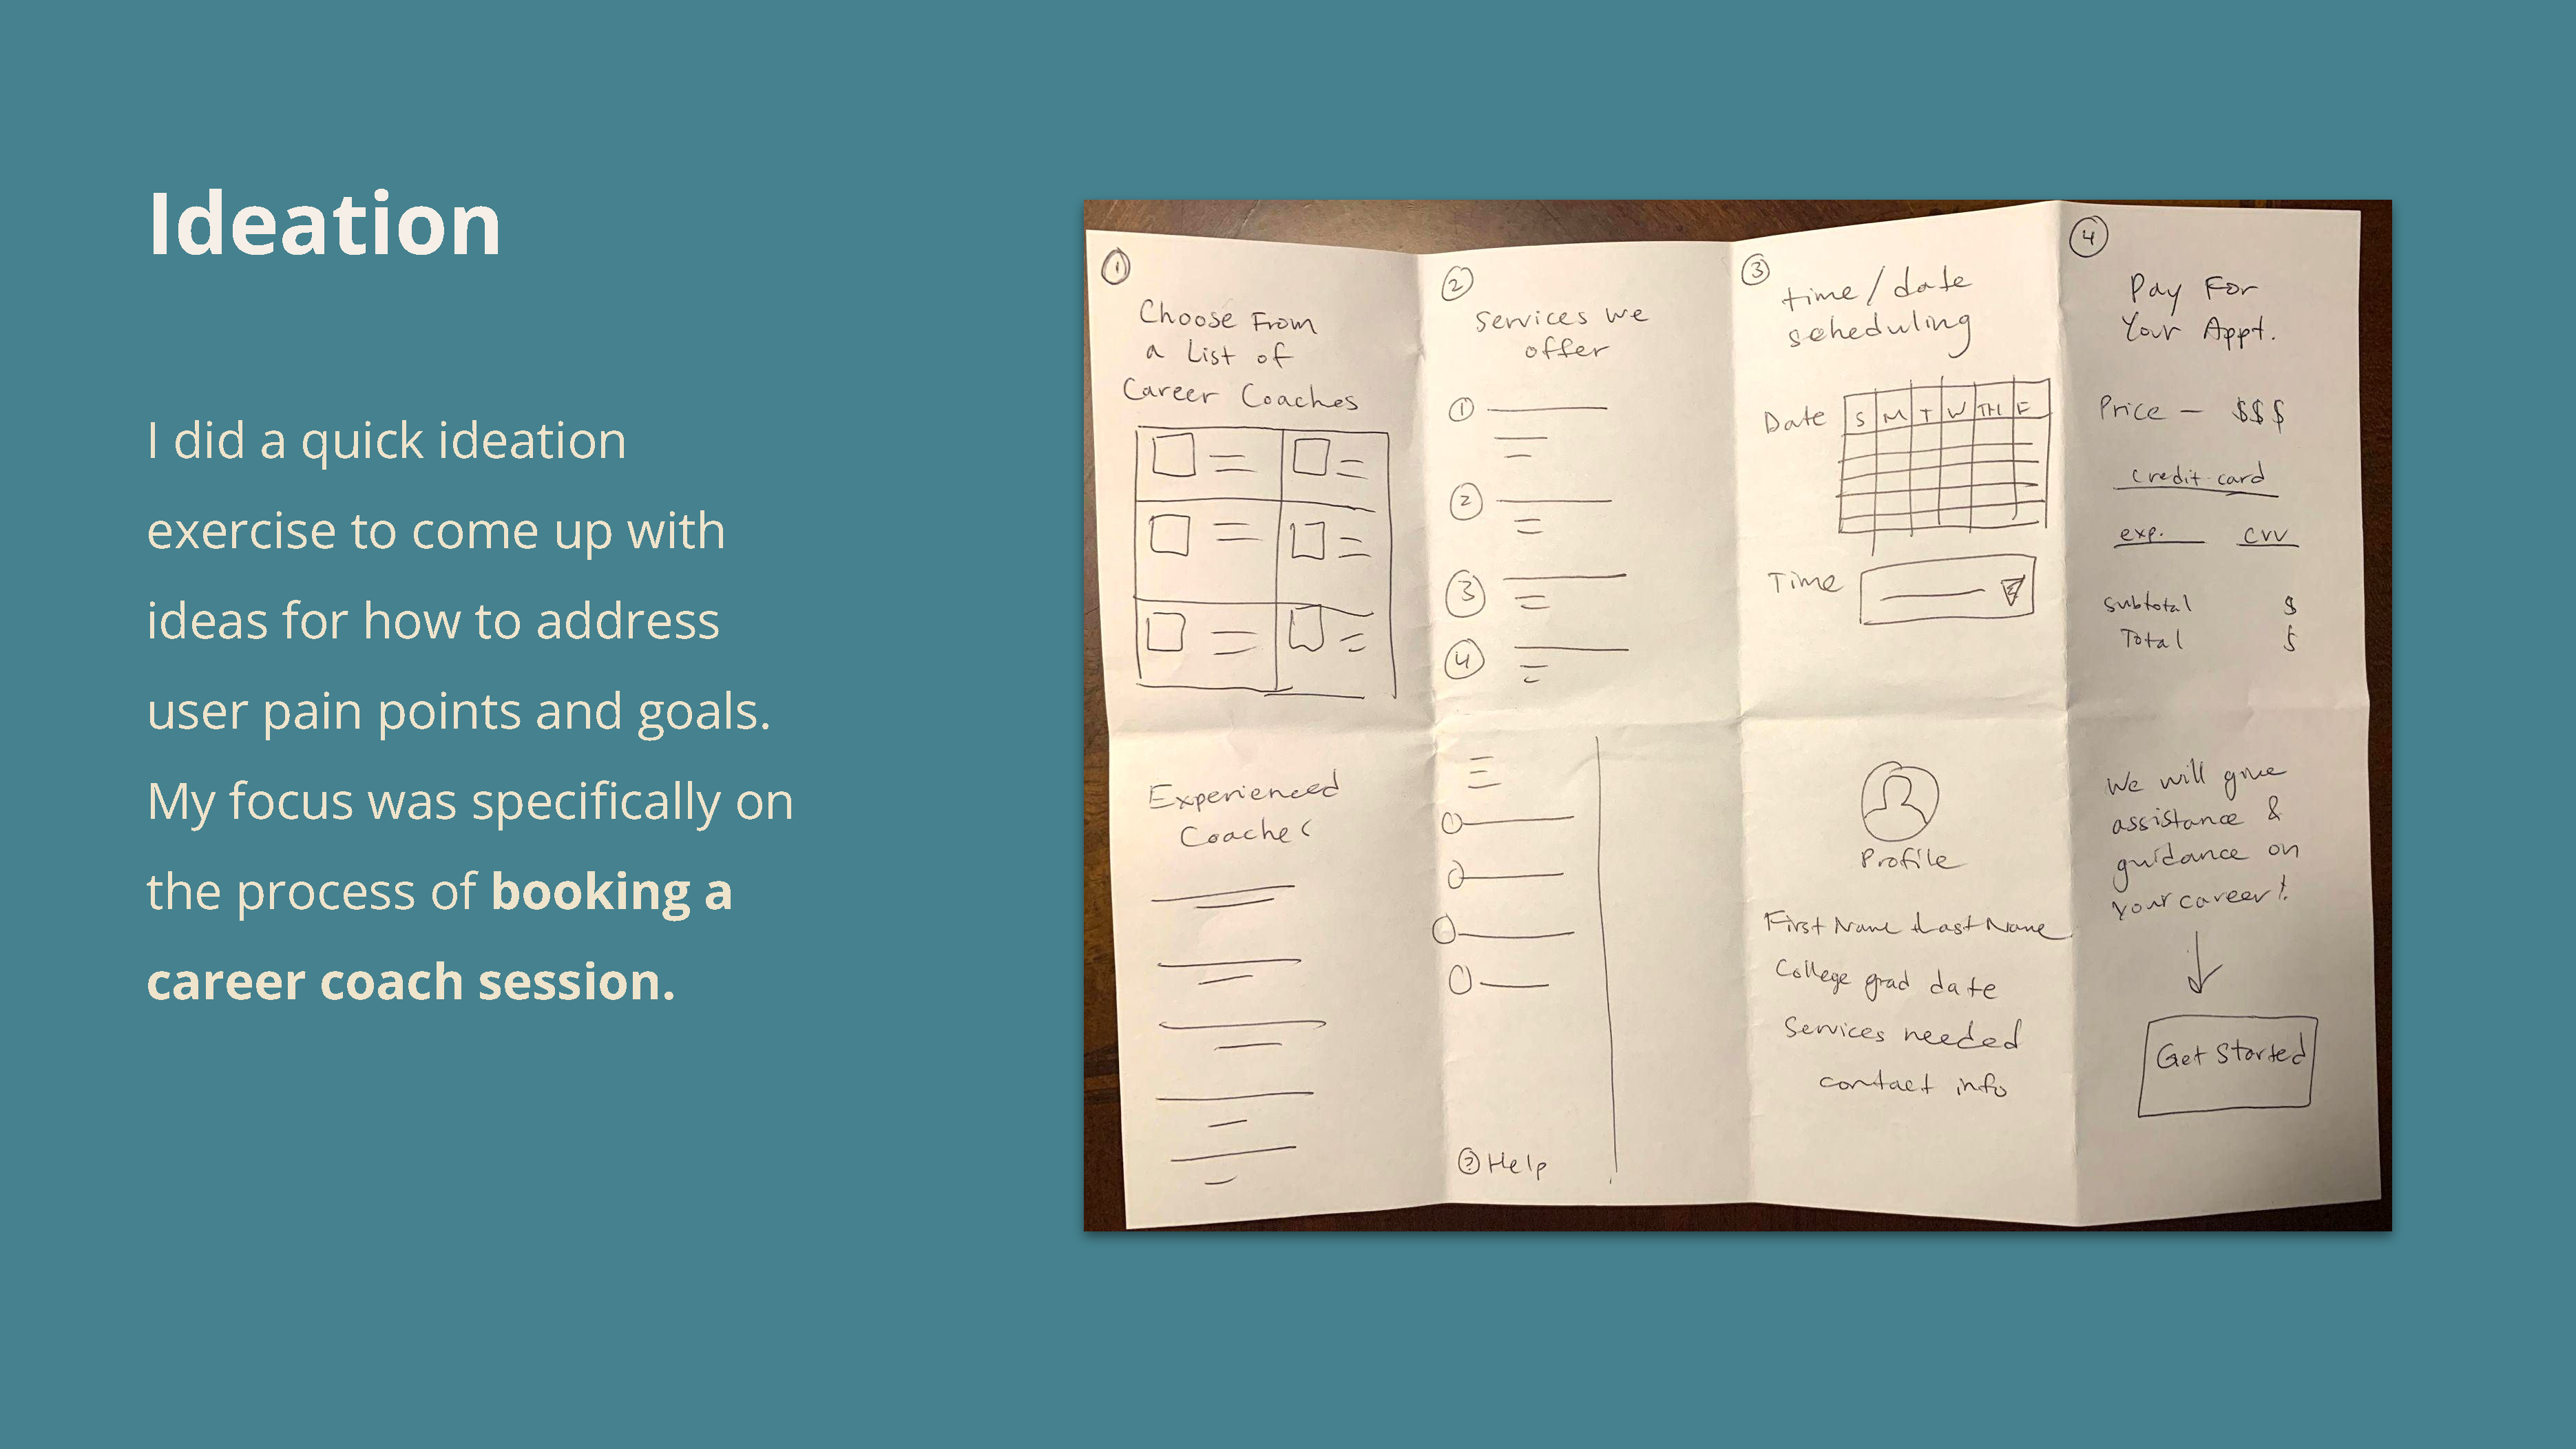 Ideation
I did a quick ideation
exercise to come up with
ideas for how to address
user pain points and goals.
My focus was specifically on
the process of booking a
career coach session.
1
Choose From
a List of
Career Coaches
2
Services we
offer
1
2
3
4
3
time/date
scheduling
Date S M T W TH F
Time
4
Pay For
Your Appt.
Price — $$$
credit card
exp. CVV
Subtotal $
Total $
Experienced
Coaches
? Help
Profile
First Name Last Name
College grad date
Services needed
contact info
We will give
assistance &
guidance on
your career!
Get Started